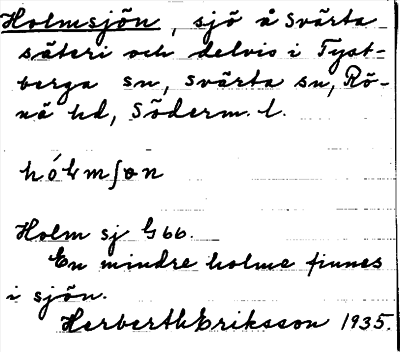 Holmsjön, sjö å Svärta
säteri och delvis i Tyst-
berga sn, Svärta sn, Rö-
nö hd, Söderm. l.
Holm sj G 66.
En mindre holme finnes
i sjön.
Herberth Eriksson 1935.